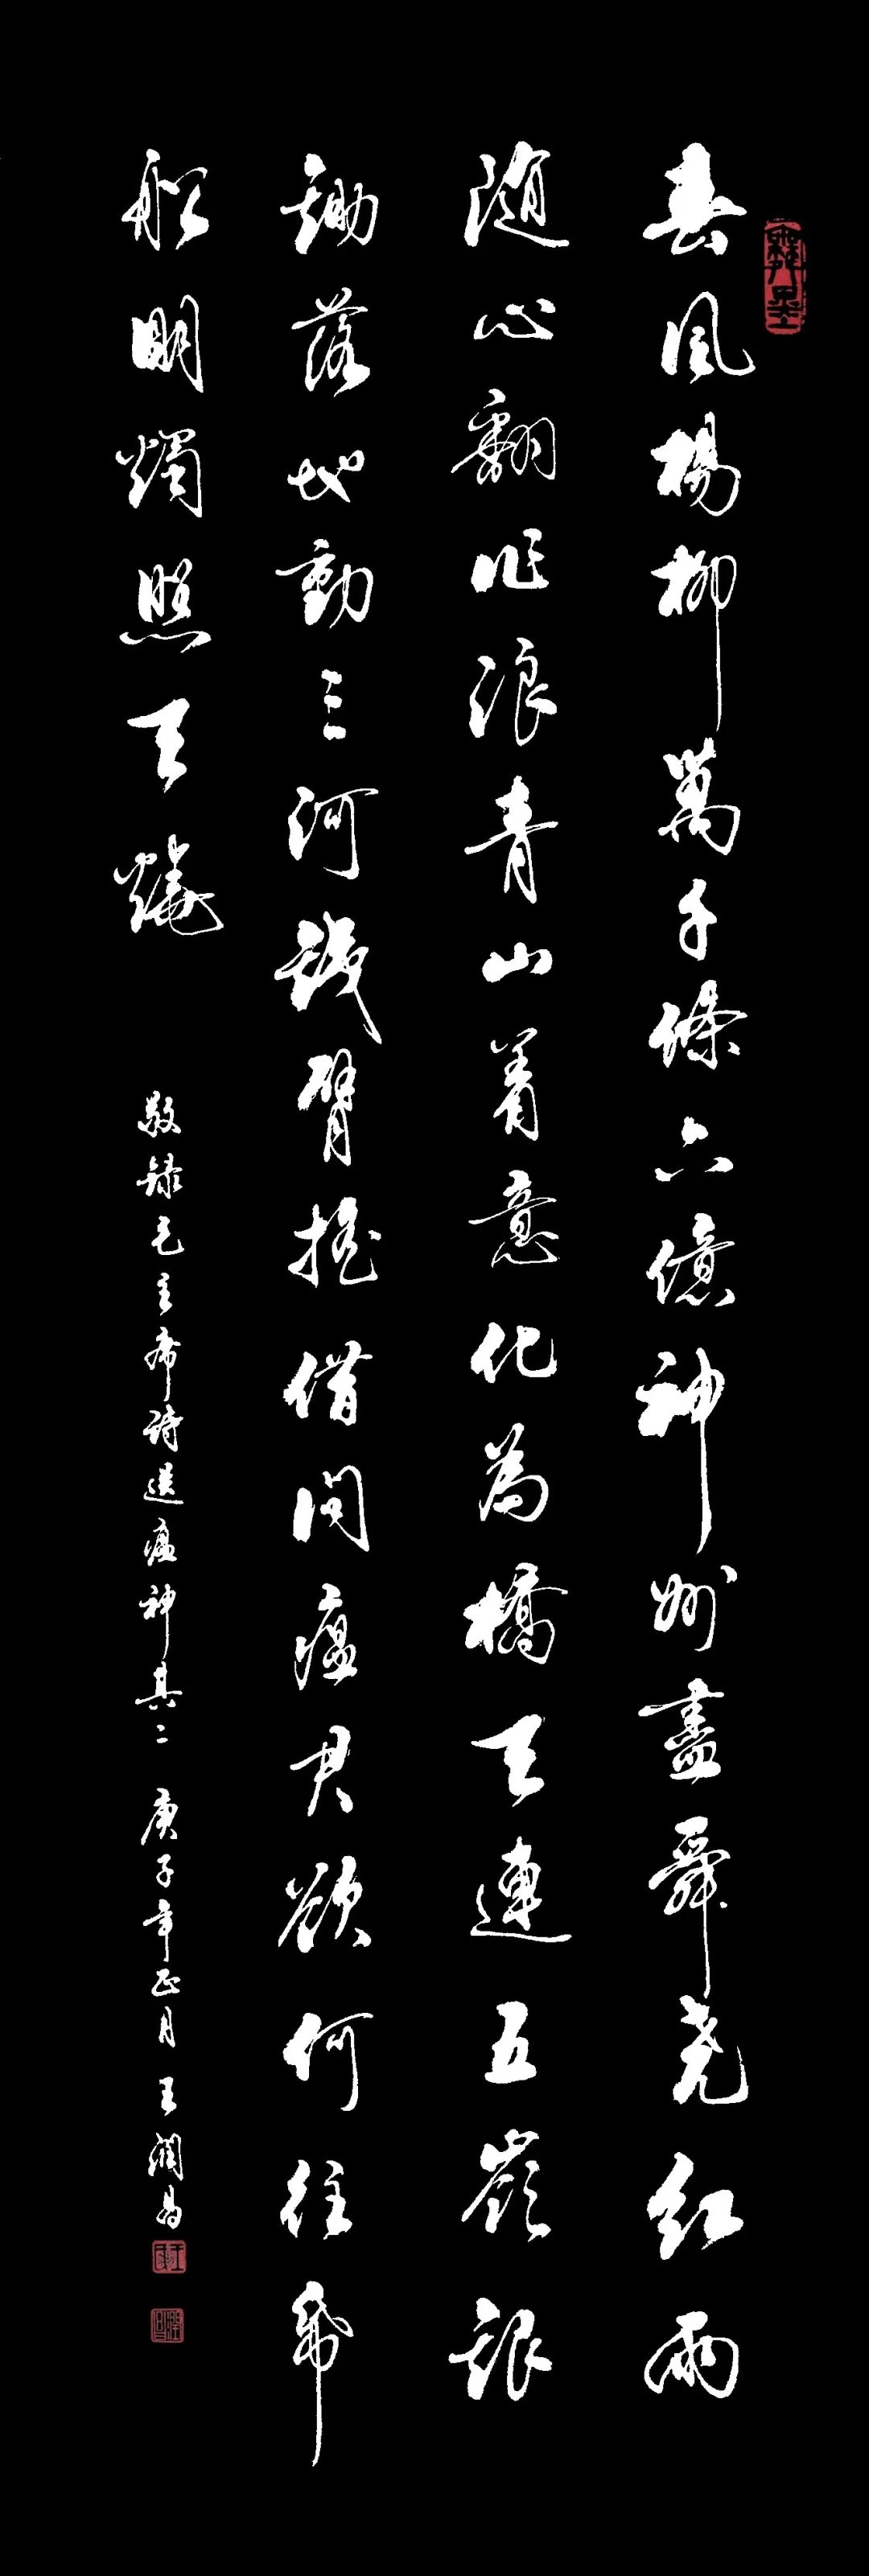 春風楊柳萬千條六億神州盡舜尧紅雨
隨心翻作浪青山著意化為橋天連五嶺銀
鋤落地動三河鐵臂搖借問瘟君欲何往紙
船明燭照天燒
敬錄毛主席詩送瘟神其二 庚子年正月 王潤昌